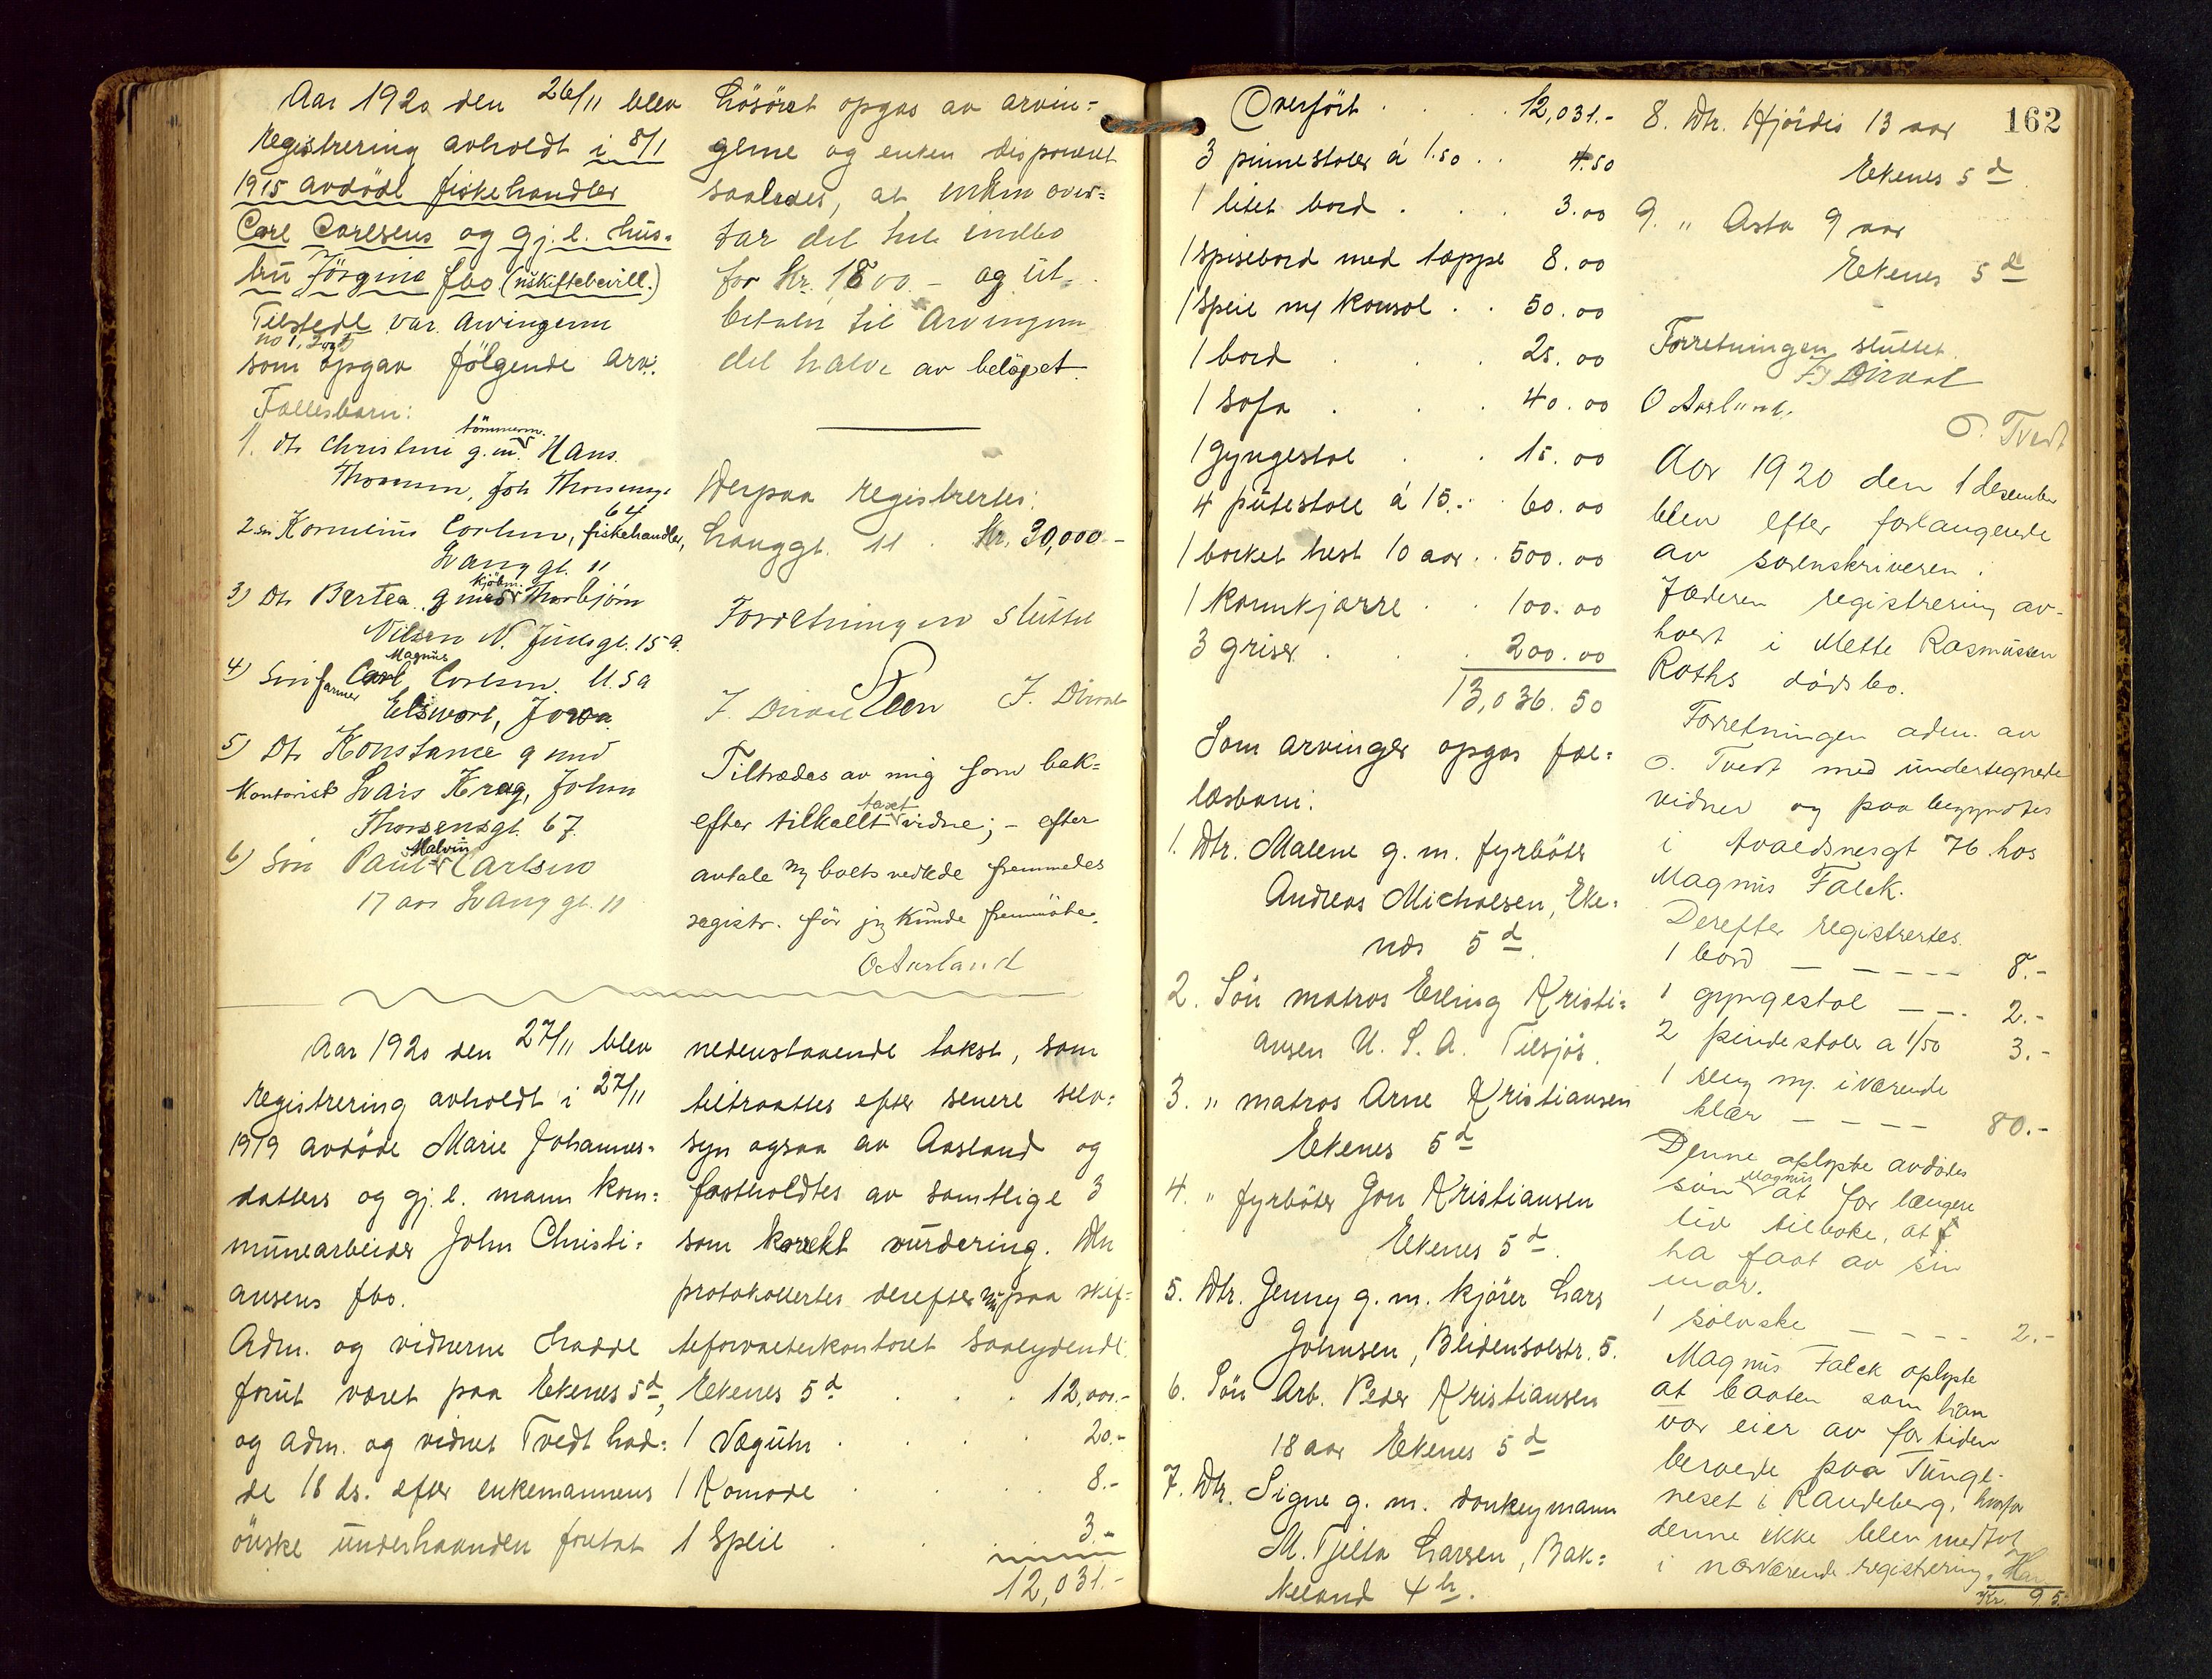 Aar 1920 den 26/11 blev
registrering avholdt i 8/1
1915 avdöde fiskehandler
Carl Carlsens og gj. l. hus-
tru Jörgine fbo (uskiftebevill.)
Tilstede var arvingerne
no 1, 2 og 3
som opgav följende arv.:
Fællesbarn:
1. Dtr Christine g. m. tömmerm. Hans
Thomsen, Joh Thorsensgt.
64
2 Sn Kornelius Carlsen, fiskehandler,
Langgt. 11
3) Dtr Bertea g med kjöbm. Thorbjörn
Nilsen N. Juelsgt. 15 a.
4) Sön farmer Carl Magnus Carlsen. U.S.a
Elswort, Jowa
5) Dtr Konstance g med
Kontorist Lars Krag, Johan
Thorsensgt. 67.
6) Sön Paul Malvin Carlsen
17 aar Langgt. 11
Aar 1920 den 27/11 blev
registrering avholdt i 27/11
1919 avdöde Marie Johannes-
datters og gj. l. mann kom-
munearbeider John Christi-
ansens fbo.
Adm. og vidnerne hadde
forut været paa Ekenes 5d,
og adm. og vidnet Tvedt had-
de 16 ds. efter enkemannens
önske underhaanden foretat
lösöret opgas av arvin-
gerne og enken disponeret
saaledes, at enken over-
tar det hele indbo
for Kr. 1800.- og ut-
betaler til Arvingerne
det halve av belöpet.
Derpaa registrertes:
Langgt. 11 . Kr. 30,000.-
Forretningen sluttet
Steen J. Dirdal
Tiltrædes av mig som bak-
efter tilkallt taxt vidne; - efter
avtale m boets vedkde fremmedes
registr. för jeg kunde fremmöte.
O Aasland
nedenstaaende takst, som
tiltraattes efter senere selv-
syn ogsaa av Aasland og
fastholdtes av samtlige 3
som korrekt vurdering. Den
protokollertes derefter nu paa skif-
teforvalterkontoret saalydende:
Ekenes 5d . . . 12,000.-
1 Væguhr . . . 20.-
1 Komode . . . 8.-
1 Speil . . . 3.-
12,031.-
162
Overfört . . . 12,031.-
3 pinnestoler á 1.50 . . 4.50
1 litet bord . . . 3.00
1 spisebord med tæppe 8.00
1 speil m/ konsol . . 50.00
1 bord . . 25.00
1 sofa . . . 40.00
1 gyngestol . . 15.00
4 putestole á 15.- . 60.00
1 borket hest 10 aar . . 500.00
1 kannkjærre . . 100.00
3 griser . . . 200.00
13,036.50
Som arvinger opgas fæl-
lesbarn:
1. Dtr. Malene g. m. fyrböter
Andreas Michalsen, Eke-
nes 5d.
2. Sön matros Erling Kristi-
ansen U. S. A. Tilsjös.
3. " matros Arne Kristiansen
Ekenes 5d
4. " fyrböter Jon Kristiansen
Ekenes 5d.
5. Dtr. Jenny g. m. kjörer Lars
Johnsen, Blidensolstr. 5.
6. Sön Arb. Peder Kristiansen
18 aar Ekenes 5d
7. Dtr. Signe g. m. donkeymann
M. Tjelta Larsen, Bak-
keland 4b.
8. Dtr. Hjördis 13 aar
Ekenes 5d
9. " Asta 9 aar
Ekenes 5d
Forretningen sluttet.
J Dirdal
O Aasland.
O. Tvedt
Aar 1920 den 1 desember
blev efter forlangende
av sorenskriveren i
Jæderen registrering av-
holdt i Mette Rasmussen
Roths dödsbo.
Forretningen adm. av
O. Tvedt med undertegnede
vidner og paabegyndtes
i Avaldsnesgt 76. hos
Magnus Falck.
Derefter registrertes.
1 bord - - - - - 8.-
1 gyngestol - - - 2.-
2 pindestoler a 1/50 3.-
1 seng m. iværende
klær - - - - 80.-
Denne oplyste avdödes
sön Magnus at for længere
tid tilbake, at
ha faat av sin
mor.
1 sölvske - - - - 2.-
Magnus Falck oplyste
at baaten som han
var eier av for tiden
beroede paa Tunge-
neset i Randeberg, hvorfor
denne ikke blev medtat
i nærværende registrering.
Kr. 95.